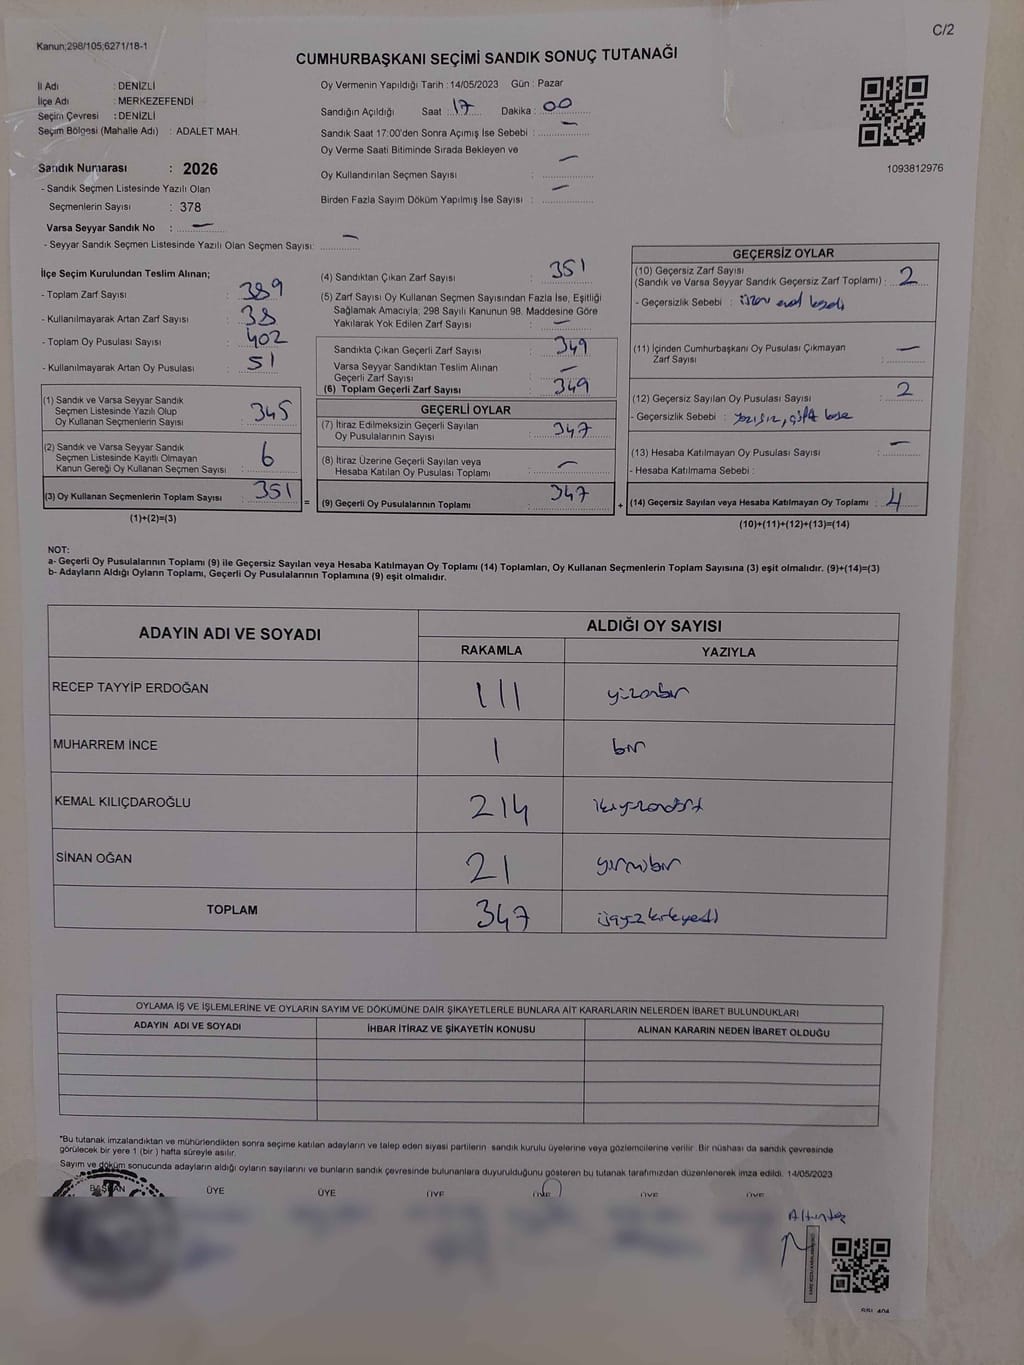 C/2
Kanun;298/105;6271/18-1
CUMHURBAŞKANI SEÇİMİ SANDIK SONUÇ TUTANAĞI
İl Adı : DENİZLİ
İlçe Adı : MERKEZEFENDİ
Seçim Çevresi : DENİZLİ
Seçim Bölgesi (Mahalle Adı) : ADALET MAH.
Sandık Numarası : 2026
- Sandık Seçmen Listesinde Yazılı Olan
Seçmenlerin Sayısı : 378
Varsa Seyyar Sandık No : —
- Seyyar Sandık Seçmen Listesinde Yazılı Olan Seçmen Sayısı: —
Oy Vermenin Yapıldığı Tarih : 14/05/2023 Gün : Pazar
Sandığın Açıldığı Saat 17 Dakika : 00
Sandık Saat 17:00'den Sonra Açımış İse Sebebi : —
Oy Verme Saati Bitiminde Sırada Bekleyen ve
Oy Kullandırılan Seçmen Sayısı : —
Birden Fazla Sayım Döküm Yapılmış İse Sayısı : —
1093812976
İlçe Seçim Kurulundan Teslim Alınan;
- Toplam Zarf Sayısı : 389
- Kullanılmayarak Artan Zarf Sayısı : 38
- Toplam Oy Pusulası Sayısı : 402
- Kullanılmayarak Artan Oy Pusulası : 51
(1) Sandık ve Varsa Seyyar Sandık
Seçmen Listesinde Yazılı Olup
Oy Kullanan Seçmenlerin Sayısı : 345
(2) Sandık ve Varsa Seyyar Sandık
Seçmen Listesinde Kayıtlı Olmayan
Kanun Gereği Oy Kullanan Seçmen Sayısı : 6
(3) Oy Kullanan Seçmenlerin Toplam Sayısı : 351
(1)+(2)=(3)
(4) Sandıktan Çıkan Zarf Sayısı : 351
(5) Zarf Sayısı Oy Kullanan Seçmen Sayısından Fazla İse, Eşitliği
Sağlamak Amacıyla; 298 Sayılı Kanunun 98. Maddesine Göre
Yakılarak Yok Edilen Zarf Sayısı : —
Sandıkta Çıkan Geçerli Zarf Sayısı : 349
Varsa Seyyar Sandıktan Teslim Alınan
Geçerli Zarf Sayısı : —
(6) Toplam Geçerli Zarf Sayısı : 349
GEÇERLİ OYLAR
(7) İtiraz Edilmeksizin Geçerli Sayılan
Oy Pusulalarının Sayısı : 347
(8) İtiraz Üzerine Geçerli Sayılan veya
Hesaba Katılan Oy Pusulası Toplamı : —
= (9) Geçerli Oy Pusulalarının Toplamı : 347
GEÇERSİZ OYLAR
(10) Geçersiz Zarf Sayısı
(Sandık ve Varsa Seyyar Sandık Geçersiz Zarf Toplamı) : 2
- Geçersizlik Sebebi :
(11) İçinden Cumhurbaşkanı Oy Pusulası Çıkmayan
Zarf Sayısı : —
(12) Geçersiz Sayılan Oy Pusulası Sayısı : 2
- Geçersizlik Sebebi : yazısız, çift
(13) Hesaba Katılmayan Oy Pusulası Sayısı : —
- Hesaba Katılmama Sebebi :
+ (14) Geçersiz Sayılan veya Hesaba Katılmayan Oy Toplamı : 4
(10)+(11)+(12)+(13)=(14)
NOT:
a- Geçerli Oy Pusulalarının Toplamı (9) ile Geçersiz Sayılan veya Hesaba Katılmayan Oy Toplamı (14) Toplamları, Oy Kullanan Seçmenlerin Toplam Sayısına (3) eşit olmalıdır. (9)+(14)=(3)
b- Adayların Aldığı Oyların Toplamı, Geçerli Oy Pusulalarının Toplamına (9) eşit olmalıdır.
ADAYIN ADI VE SOYADI
ALDIĞI OY SAYISI
RAKAMLA YAZIYLA
RECEP TAYYİP ERDOĞAN 111 yüzonbir
MUHARREM İNCE 1 bir
KEMAL KILIÇDAROĞLU 214 ikiyüzondört
SİNAN OĞAN 21 yirmibir
TOPLAM 347 üçyüzkırkyedi
OYLAMA İŞ VE İŞLEMLERİNE VE OYLARIN SAYIM VE DÖKÜMÜNE DAİR ŞİKAYETLERLE BUNLARA AİT KARARLARIN NELERDEN İBARET BULUNDUKLARI
ADAYIN ADI VE SOYADI İHBAR İTİRAZ VE ŞİKAYETİN KONUSU ALINAN KARARIN NEDEN İBARET OLDUĞU
*Bu tutanak imzalandıktan ve mühürlendikten sonra seçime katılan adayların ve talep eden siyasi partilerin sandık kurulu üyelerine veya gözlemcilerine verilir. Bir nüshası da sandık çevresinde
görülecek bir yere 1 (bir ) hafta süreyle asılır.
Sayım ve döküm sonucunda adayların aldığı oyların sayılarını ve bunların sandık çevresinde bulunanlara duyurulduğunu gösteren bu tutanak tarafımızdan düzenlenerek imza edildi. 14/05/2023
BAŞKAN ÜYE ÜYE ÜYE ÜYE ÜYE ÜYE